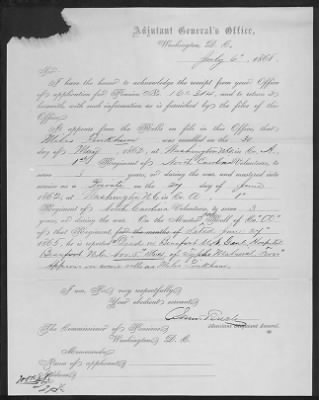 Adjutant General's Office,
Washington, D. C.,
July 6th, 1868.
Sir:
I have the honor to acknowledge the receipt from your Office
of application for Pension No. 162,314, and to return it
herewith with such information as is furnished by the files of this
Office.
It appears from the Rolls on file in this Office, that
was enrolled on the
day of May, 1862, at Washington N.C. in Co. A,
1st Regiment of North Carolina Volunteers, to
serve 3 years, or during the war, and mustered into
service as a Private on the day of June,
1862, at Washington N.C. in Co. A 1st
Regiment of North Carolina Volunteers, to serve 3
years, or during the war. On the Muster Roll of Co. "A"
of that Regiment, dated June 27"
1865, he is reported Died in Beaufort Genl Hospital
Beaufort N.C. Nov. 5"
appears on
I am, Sir, very respectfully,
Your obedient servant,
Assistant Adjutant General.
The Commissioner of Pensions,
Washington, D. C.
Memoranda:
Name of applicant,
Address,